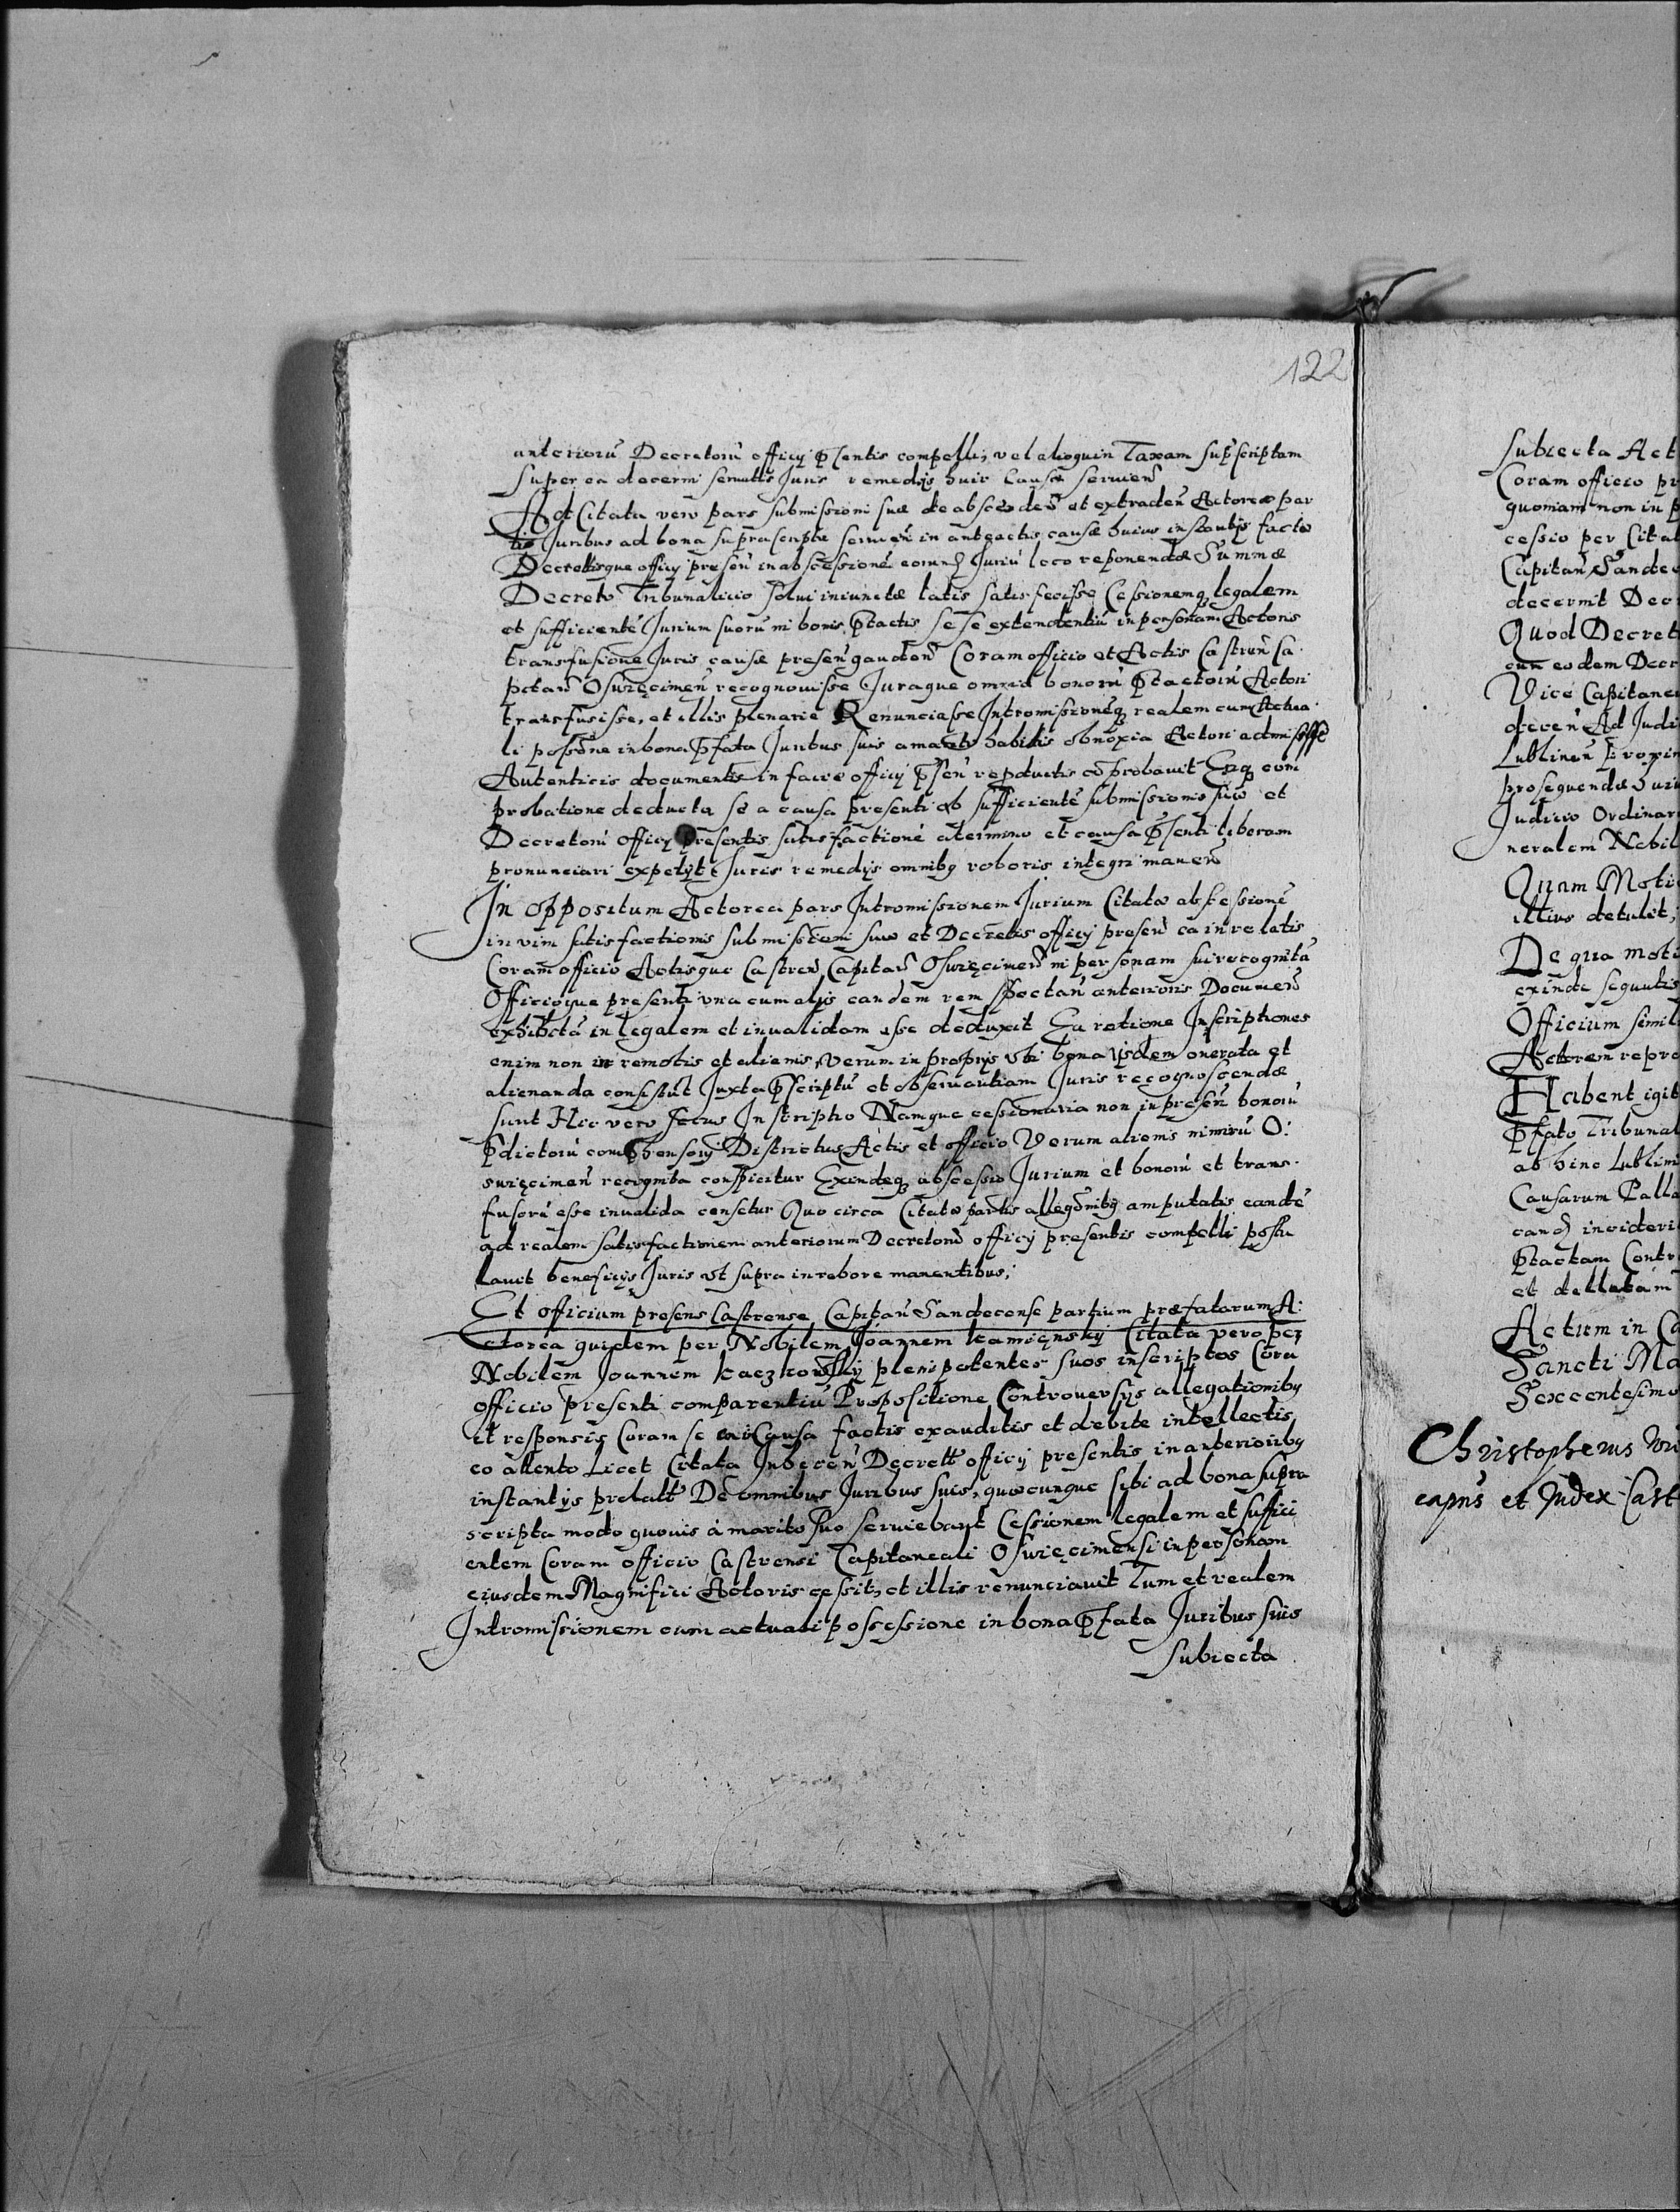 122
anteriorũ Decretorũ officij p̃sentis compelli, vel alioquin Taxam sup̃scriptam
super ea decerni seruatis Juris remedijs huic Causæ seruieñ
Ad Citata vero pars submissioni suæ de abscedeñ et extradeñ Actoreæ par
tis Juribus ad bona suprascripta seruieñ in anteactis causæ huius instantijs factæ
Decretisque officij preseñ in abscessionẽ eorund Juriũ loco reponendæ Summæ
Decreto Tribunalicio solui iniunctæ latis satisfecisse Cessionemq legalem
et sufficientẽ Jurium suorũ in bonis p̃tactis se se extendentiũ in personam Actoris
transfusione Juris causæ preseñ gaudeñ Coram officio et Actis Castreñ Ca
pitañ Oswięcimeñ recognouisse Juraque omnia bonorũ p̃tactorũ Actori
transfusisse, et illis plenarie Renunciasse Intromissionẽq realem cum Actua
li possõne in bona p̃fata Juribus suis a marito habitis obnoxia Actori admisisse
Autenticis documentis in facie officij p̃señ reproductis cõprobavit Eaq com
probatione deducta se a causa presenti ob sufficientẽ submissionis suæ et
Decretorũ officij presentis satisfactionẽ a termino et causa p̃senti liberam
pronunciari expetijt Juris remedijs omnibq roboris integri maneñ
In oppositum Actorea pars Intromissionem Jurium Citatæ abscessionẽ
in vim satisfactionis submissioni suæ et Decretis officij preseñ ea in re latis
Coram officio Actisque Castreñ Capitañ Oswięcimeñ in personam sui recognitã
Officioque presenti vna cum alijs eandem rem spectañ anterioris Documeñ
exhibitã inlegalem et inualidam esse deduxit Ea ratione Inscriptiones
enim non in remotis et alienis, verum in proprijs vbi bona ijsdem onerata et
alienanda consistũt Juxta p̃scriptũ et obseruantiam Juris recognoscendæ
sunt Hic vero secus Inscriptio Namque cessionaria non in preseñ bonorũ
p̃dictorũ comp̃hensorij Districtus Actis et officio Verum alienis nimirũ O:
swięcimeñ recognita conspicitur Exindeq abscessio Jurium et bonorũ et trans
fusorũ esse inualida censetur Quo circa Citatæ partis allegõnibq amputatis eandẽ
ad realem satisfactionem anteriorum Decretorũ officij presentis compelli postu
lauit beneficijs Juris vt supra in robore manentibus;
Et officium presens Castrense Capitañ Sandecense partium præfatarum A:
ctorea quidem per Nobilem Joannem Kamięnsky Citata vero per
Nobilem Joannem Kaczkowsky plenipotentes suos inscriptos Corã
officio presenti comparentiũ Propositione Controuersijs allegationibq
et responsis Coram se in Causa factis exauditis et debite intellectis
eo attento Licet Citata Inhereñ Decrett officij presentis in anterioribq
instantijs prelatt De omnibus Juribus suis, quæcunque sibi ad bona supra
scripta modo quouis à marito suo seruiebant Cessionem legalem et suffici
entem Coram officio Castrensi Capitaneali Oswięcimensi in personam
eiusdem Magnifici Actoris cessit, et illis renunciauit Tum et realem
Intromissionem cum actuali possessione in bona p̃fata Juribus suis
Subiecta
Subiecta Act
Coram officio pr
quoniam non in p
cessio per Citat
Capitañ Sande
decernit Dec
Quod Decret
cun eodem Decr
Vice Capitane
deceñ Ad Judi
Lublineñ proxim
prosequendæ Juri
Judicio Ordinar
neralem Nobil
Quam Moti
ltius detulit,
De qua moti
exinde sequutis
Officium simil
Actorem repro
Habent igit
p̃fato Tribunal
ab hinc Lublin
Causarum Palla
cand inciderit
p̃tactam Contr
et dellatam
Actum in Ca
Sancti Ma
Sexcentesimo
Christopherus
capñs et Judex Cast